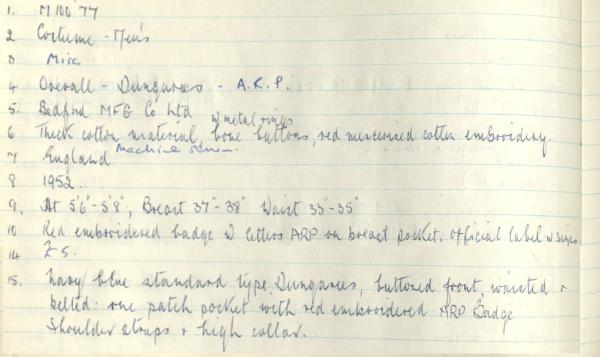 1. M100'77
2 Costume - Men's
3 Misc
4 Overall - Dungarees - A.R.P.
5. Bedford MFG Co Ltd
w metal rings
6 Thick cotton material, bone buttons, red mercerised cotton embroidery.
7 England Machine sewn.
8 1952.
9. Ht 5'6"-5'8", Breast 37"-38" Waist 33"-35"
10 Red embroidered badge w letters ARP on breast pocket. Official label w sizes
14 £5.
15. Navy blue standard type Dungarees, buttoned front, waisted +
belted: one patch pocket with red embroidered ARP Badge
Shoulder straps + high collar.